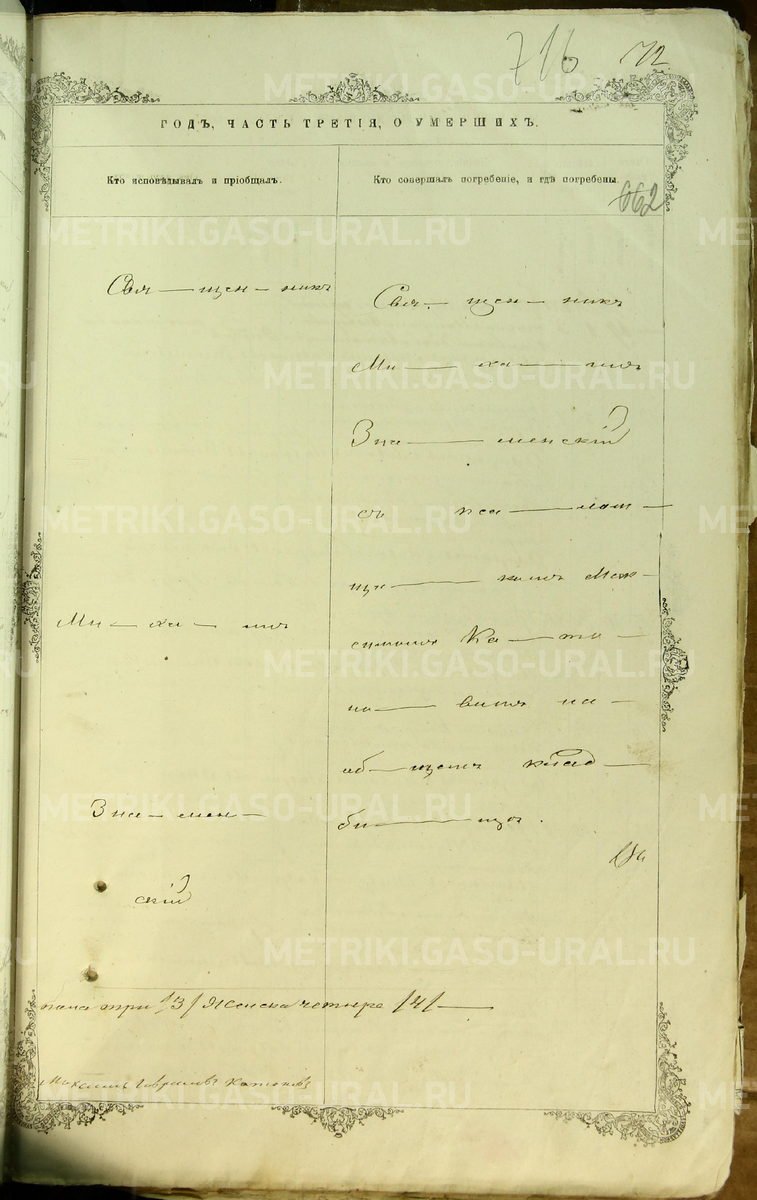 716 172
ГОДЪ, ЧАСТЬ ТРЕТІЯ, О УМЕРШИХЪ.
Кто исповѣдывалъ и пріобщалъ.
Кто совершалъ погребеніе, и гдѣ погребены.
662
Свя — щен — никъ
Ми — ха — илъ
Зна — мен —
скій
Свя — щен — никъ
Ми — ха — илъ
Зна — менскій
съ пса — лом —
щи — комъ Мак —
симомъ Ка — ти —
но — вымъ на —
об — щемъ клад —
би — щѣ.
три /3/ Женска четыре /4/ —
METRIKI.GASO-URAL.RU